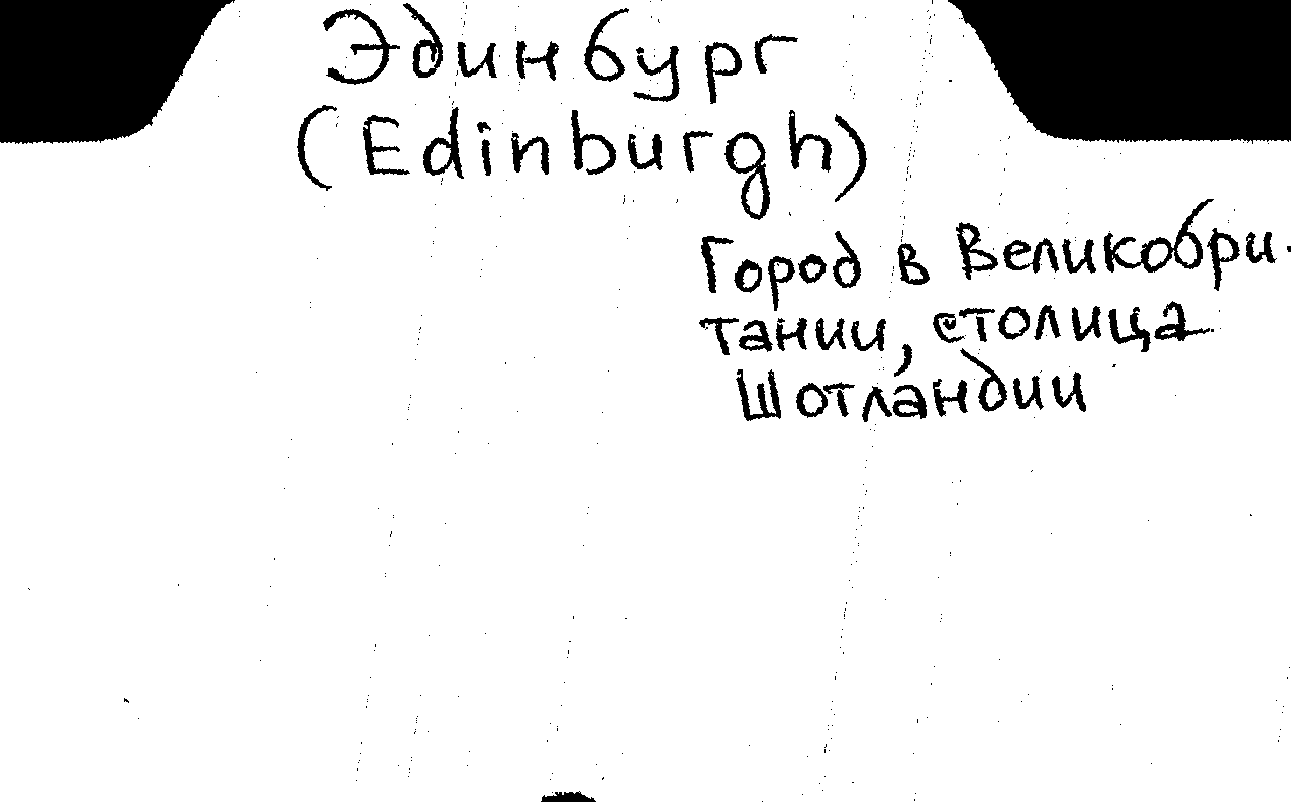 Эдинбург
(Edinburgh)
Город в Великобри-
тании, столица
Шотландии